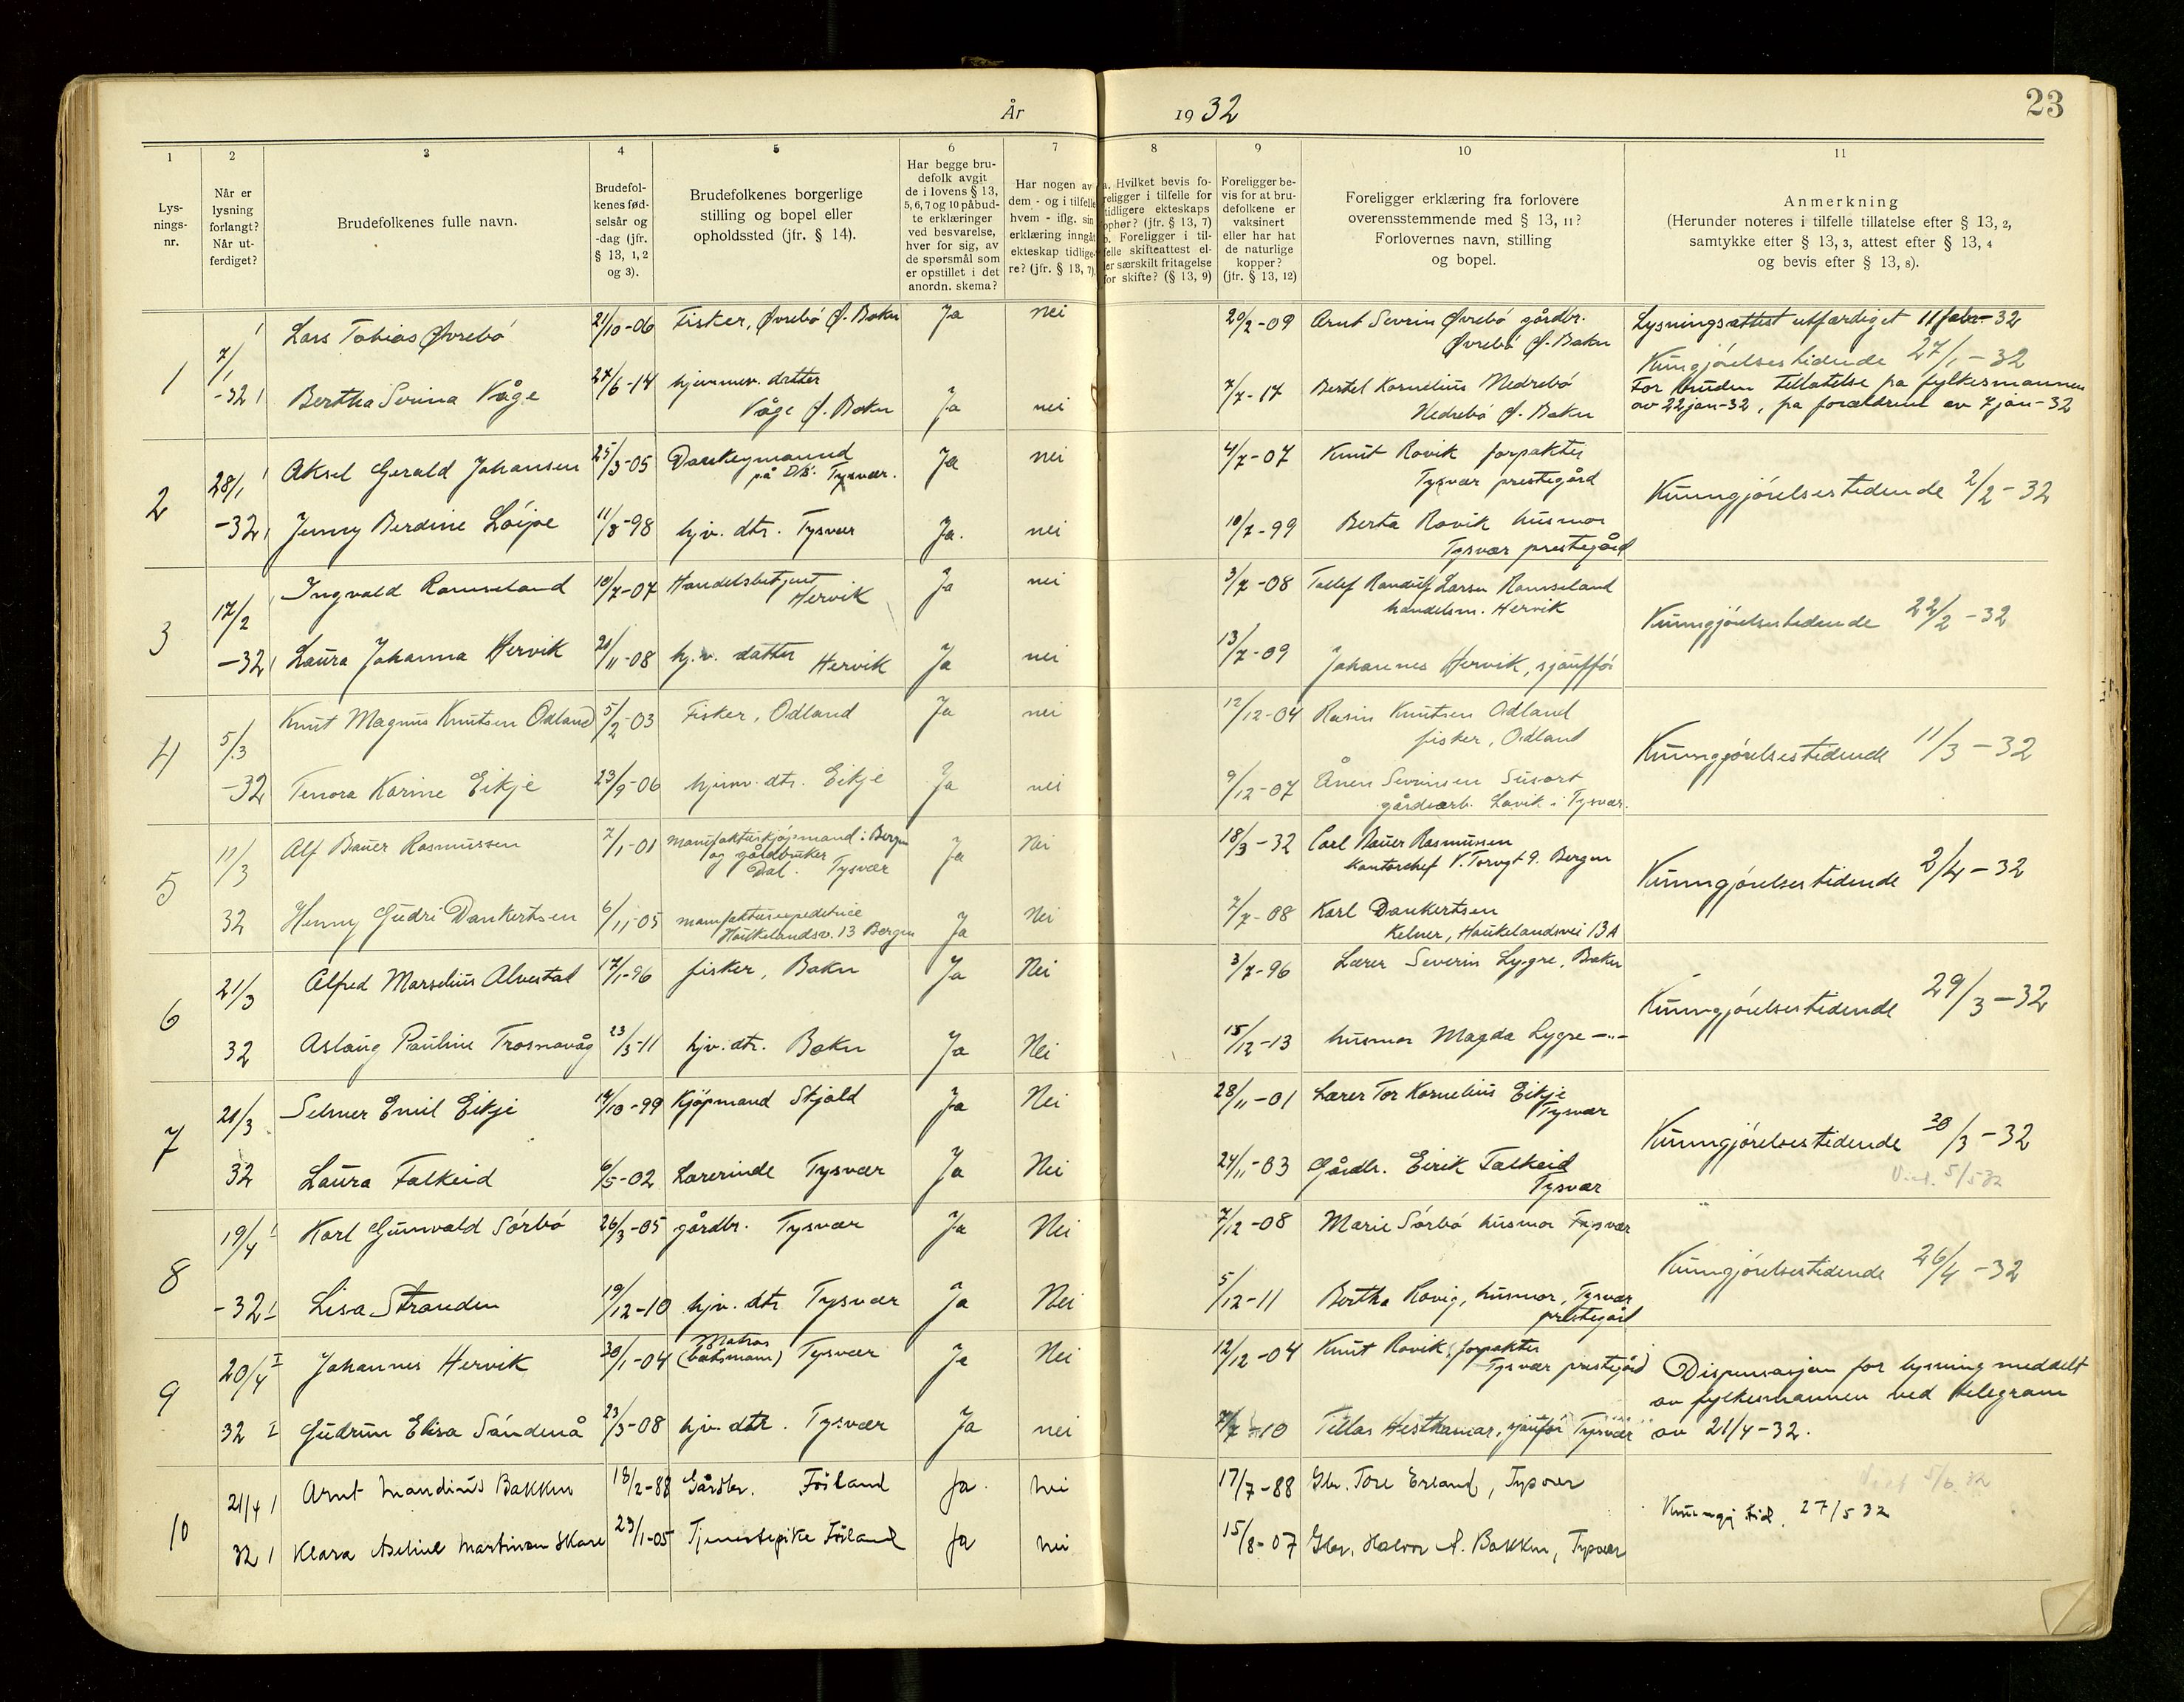 År
1932
23
1
2
3
4
5
6
7
8
9
10
11
Lys-
nings-
nr.
Når er
lysning
forlangt?
Når ut-
ferdiget?
Brudefolkenes fulle navn.
Brudefol-
kenes fød-
selsår og
-dag (jfr.
§ 13, 1, 2
og 3).
Brudefolkenes borgerlige
stilling og bopel eller
opholdssted (jfr. § 14).
Har begge bru-
defolk avgit
de i lovens § 13,
5, 6, 7 og 10 påbud-
te erklæringer
ved besvarelse,
hver for sig, av
de spørsmål som
er opstillet i det
anordn. skema?
Har nogen av
dem - og i tilfelle
hvem - iflg. sin
erklæring inngåt
ekteskap tidlige-
re? (jfr. § 13, 7).
a. Hvilket bevis fo-
religger i tilfelle for
tidligere ekteskaps
ophør? (jfr. § 13, 7)
b. Foreligger i til-
felle skifteattest el-
ler særskilt fritagelse
for skifte? (§ 13, 9)
Foreligger be-
vis for at bru-
defolkene er
vaksinert
eller har hat
de naturlige
kopper?
(jfr. § 13, 12)
Foreligger erklæring fra forlovere
overensstemmende med § 13, 11?
Forlovernes navn, stilling
og bopel.
Anmerkning
(Herunder noteres i tilfelle tillatelse efter § 13, 2,
samtykke efter § 13, 3, attest efter § 13, 4
og bevis efter § 13, 8).
1
7/1
-32
Lars Tobias Øvrebö 21/10-06 Fisker, Øvrebö Ø. Bokn Ja nei 20/2-09 Arnt Sevrin Øvrebö gårdbr.
Øvrebö Ø. Bokn
Lysningsattest utfærdiget 11 febr-32
Kungjörelsestidende 27/1-32
Bertha Serina Våge 24/6-14 hjemmev. datter
Våge Ø. Bokn Ja nei 7/7-17 Bertel Kornelius Nedrebö
Nedrebö Ø. Bokn
For bruden tillatelse fra fylkesmannen
av 22 jan-32, fra forældrene av 7 jan-32
2
28/1
-32
Aksel Gerald Johansen 25/3-05 Donkeymannd
på D/S: Tysvær. Ja nei 4/7-07 Knut Rovik forpakter
Tysvær prestegård
Jenny Berdine Löipe 11/8-98 hjv. dtr. Tysvær Ja. nei 10/7-99 Berta Rovik husmor
Tysvær prestegård
Kunngjörelsestidende 2/2-32
3
17/2
-32
Ingvald Ramseland 10/7-07 Handelsbetjent
Hervik Ja nei 3/7-08 Tollef Randulf Larsen Ramseland
handelsm. Hervik
Laura Johanna Hervik 21/11-08 hj.v. datter Hervik Ja nei 13/7-09 Johannes Hervik, sjaufför
Kunngjörelsestidende 22/2-32
4
5/3
-32
Knut Magnus Knutsen Odland 5/2-03 Fisker, Odland Ja nei 12/12-04 Rasin Knutsen Odland
fisker, Odland
Tenora Karine Eikje 23/9-06 hjemv. dtr. Eikje Ja nei 9/12-07 Ånen Sevrinsen Susort
gårdsarb. Lavik i Tysvær.
Kunngjörelsestidende 11/3-32
5
11/3
32
Alf Bauer Rasmussen 7/1-01 manufakturkjöpmand i Bergen
og gårdbruker
Dal. Tysvær Ja Nei 18/3-32 Carl Bauer Rasmussen
kontorchef V. Torvgt 9. Bergen
Henny Gudri Dankertsen 6/11-05 manufakturexpeditrice
Haukelandsv. 13 Bergen Ja Nei 7/7-08 Karl Dankertsen
Kelner, Haukelandsvei 13A
Kunngjörelsestidende 2/4-32
6
21/3
32
Alfred Marselius Alvestad 17/1-96 fisker, Bokn Ja Nei 3/7-96 Lærer Severin Lygre, Bokn
Aslaug Pauline Trosnavåg 23/3-11 hjv. dtr. Bokn Ja Nei 15/12-13 husmor Magda Lygre -"-
Kunngjörelsestidende 29/3-32
7
21/3
32
Selmer Emil Eikje 14/10-99 Kjöpmand Skjold Ja Nei 28/11-01 Lærer Tor Kornelius Eikje
Tysvær
Laura Falkeid 6/5-02 Lærerinde Tysvær Ja Nei 24/11-03 Gårdbr. Eirik Falkeid
Tysvær
Kunngjörelsestidende 30/3-32
5/5 32
8
19/4
-32
Karl Gunvald Sörbö 26/3-05 gårdbr. Tysvær Ja Nei 7/12-08 Marie Sörbö husmor Tysvær
Lisa Stranden 19/12-10 hjv. dtr Tysvær Ja Nei 5/12-11 Bertha Rovig, husmor, Tysvær
prestegård
Kunngjörelsestidende 26/4-32
9
20/4
32
Johannes Hervik 30/1-04 Matros
(båtsmann) Tysvær Ja Nei 12/12-04 Knut Rovik, forpakter
Tysvær prestegård
Gudrun Elisa Sandenå 23/3-08 hjv. dtr. Tysvær Ja nei 7/7-10 Tellas Hesthamar, sjauför Tysvær
Dispensasjon for lysning meddelt
av fylkesmannen ved telegram
av 21/4-32.
10
21/4
32
Arnt Mandius Bakken 18/2-88 Gårdbr. Fölland Ja. nei 17/7-88 Gbr. Tore Erland, Tysvær
Klara Aseline Martinsen Skare 23/1-05 Tjenestepike Fölland Ja nei 15/8-07 Gbr. Halvor A. Bakken, Tysvær
5/6 32
Kunngj tid. 27/5 32